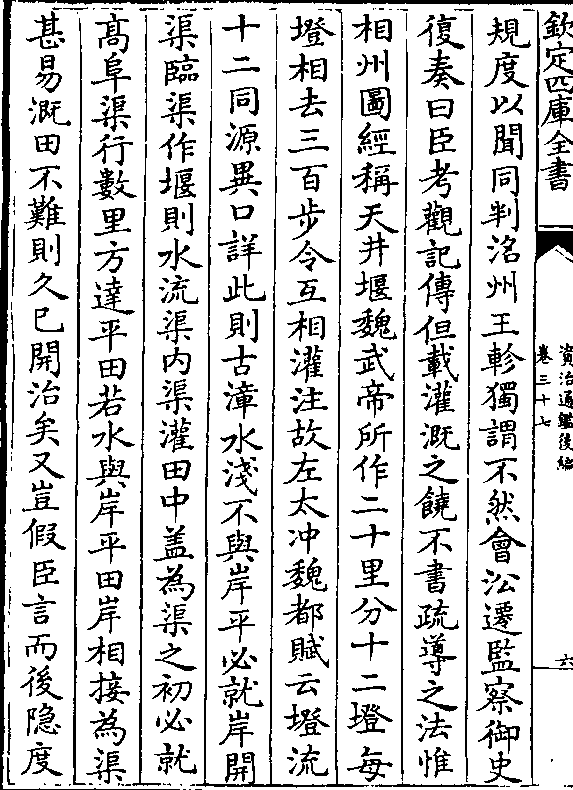 欽定四庫全書
資治通鑑後編
卷三十七
六
規度以聞同判洺州王軫獨謂不然會㳂遷監察御史
復奏曰臣考觀記傳但載灌溉之饒不書疏導之法惟
相州圖經稱天井堰魏武帝所作二十里分十二墱每
墱相去三百步令互相灌注故左太冲魏都賦云墱流
十二同源異口詳此則古漳水淺不與岸平必就岸開
渠臨渠作堰則水流渠内渠灌田中盖為渠之初必就
高阜渠行數里方達平田若水與岸平田岸相接為渠
甚易溉田不難則久已開治矣又豈假臣言而後隐度